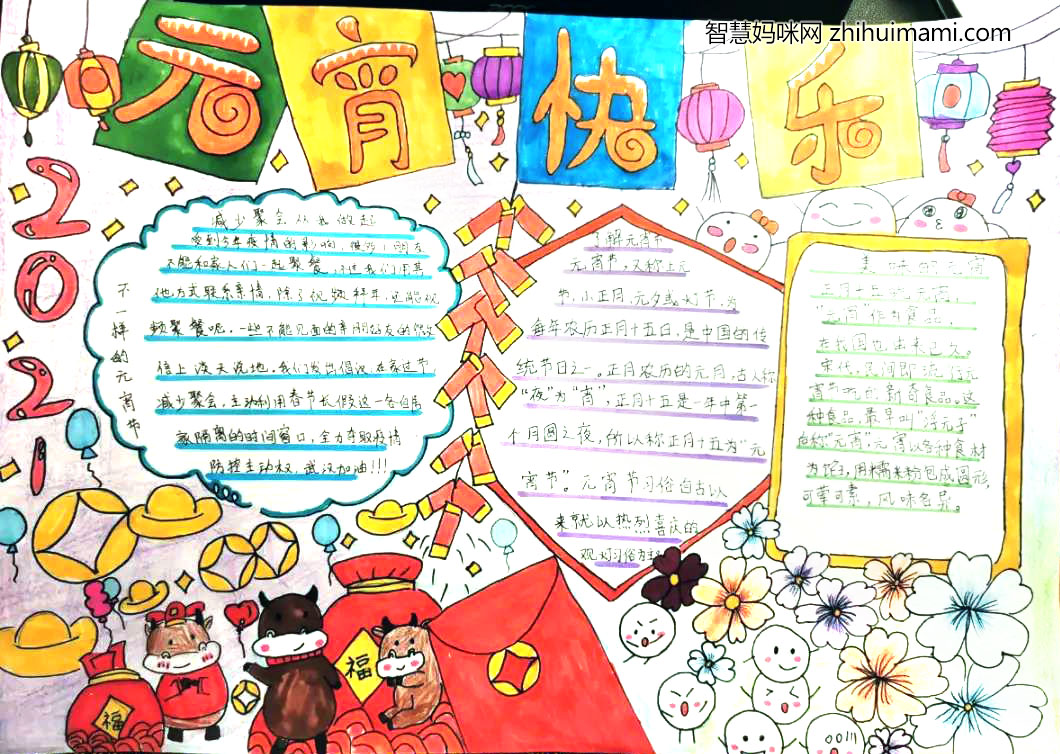 智慧妈咪网 zhihuimami.com
元宵快乐
2021
不一样的元宵节
减少聚会从我做起
受到今年疫情的影响,很多小朋友
不能和家人们一起聚餐,不过我们用其
他方式联系亲情,除了视频拜年,还能视
频聚餐呢,一些不能见面的亲朋好友的微
信上谈天说地。我们发出倡议:在家过节,
减少聚会,主动利用春节长假这一各自居
家隔离的时间窗口,全力夺取疫情
防控主动权,武汉加油!!!
了解元宵节
元宵节,又称上元
节,小正月、元夕或灯节,为
每年农历正月十五日,是中国的传
统节日之一。正月农历的元月,古人称
“夜”为“宵”,正月十五是一年中第一
个月圆之夜,所以称正月十五为“元
宵节”。元宵节习俗自古以
来就以热烈喜庆的
观灯习俗为主
美味的元宵
正月十五吃元宵,
“元宵”作为食品,
在我国也由来已久。
宋代,民间即流行元
宵节吃的新奇食品。这
种食品,最早叫“浮元子”
后称“元宵”元宵以各种食材
为馅,用糯米粉包成圆形,
可荤可素,风味各异。
福
福